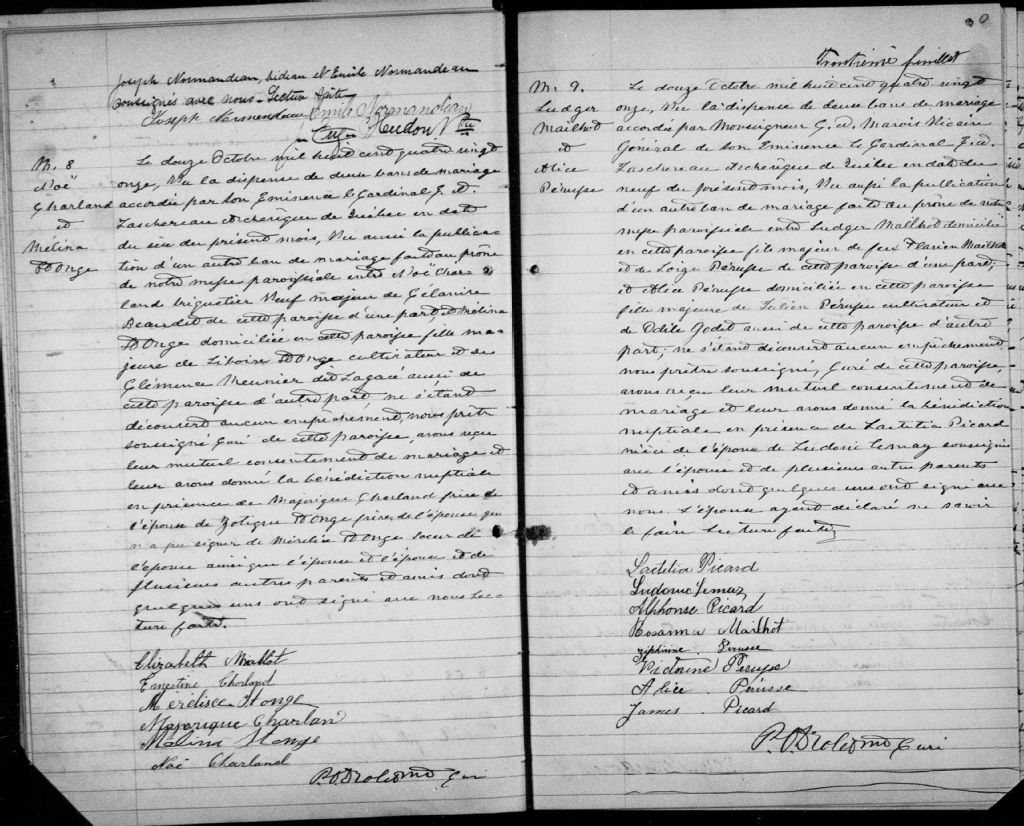 Joseph Normandeau, bedeau et Emile Normandeau
soussignés avec nous. Lecture faite
Joseph Normandeau Emile Normandeau
Eug. Hudon Ptre
M. 8
Noë
Charland
et
Mélina
St Onge
Le douze Octobre mil huit cent quatre vingt
onze, Vu la dispense de deux bans de mariage
accordée par Son Eminence le Cardinal E. A.
Taschereau Archevêque de Québec en date
du six du présent mois, Vu aussi la publica-
tion d'un autre ban de mariage faite au prône
de notre messe paroissiale entre Noë Char-
land briquetier Veuf majeur de Gélanire
Beaudet de cette paroisse d'une part et Mélina
St Onge domiciliée en cette paroisse fille ma-
jeure de Liboire St Onge cultivateur et de
Clémence Meunier dit Lagacé aussi de
cette paroisse d'autre part, ne s'étant
découvert aucun empêchement, nous prêtre
soussigné Curé de cette paroisse, avons reçu
leur mutuel consentement de mariage et
leur avons donné la bénédiction nuptiale
en présence de Majorique Charland frère de
l'épous de Zotique St Onge frère de l'épouse qui
n'a pu signer de Mérélise St Onge soeur de
l'épouse ainsi que l'époux et l'épouse et de
plusieurs autres parents et amis dont
quelques uns ont signé avec nous Lec-
ture faite.
Elizabeth Mallot
Ernestine Charland
Mérélise St onge
Majorique Charland
Mélina St onge
Noé Charland
P. O. Drolet Curé
Trentième feuillet
M. 9.
Ludger
Mailhot
et
Alice
Pérusse
Le douze Octobre mil huit cent quatre vingt
onze, Vu la dispense de deux bans de mariage
accordée par Monseigneur C. A. Marois Vicaire
Général de Son Eminence le Cardinal E. A.
Taschereau Archevêque de Québec en date du
neuf du présent mois, Vu aussi la publication
d'un autre ban de mariage faite au prône de notre
messe paroissiale entre Ludger Mailhot domicilié
en cette paroisse fils majeur de feu Hlarion Mailhot
et de Loize Pérusse de cette paroisse d'une part;
et Alice Pérusse domiciliée en cette paroisse
fille majeure de Julien Pérusse cultivateur et
de Odile Fodet aussi de cette paroisse d'autre
part; ne s'étant découvert aucun empêchement
nous prêtre soussigné, Curé de cette paroisse,
avons reçu leur mutuel consentement de
mariage et leur avons donné la bénédiction
nuptiale en présence de Laetitia Picard
nièce de l'épous de Ludovic Lemay soussignés
avec l'épouse et de plusieurs autres parents
et amis dont quelques uns ont signé avec
nous. L'épous ayant déclaré ne savoir
le faire Lecture faite
Laetitia Picard
Ludovic Lemay
Alphonse Picard
Rosanna Mailhot
Zéphirine Perusse
Victorine Pérusse
Alice. Pérusse
James. Picard
P. O. Drolet Curé